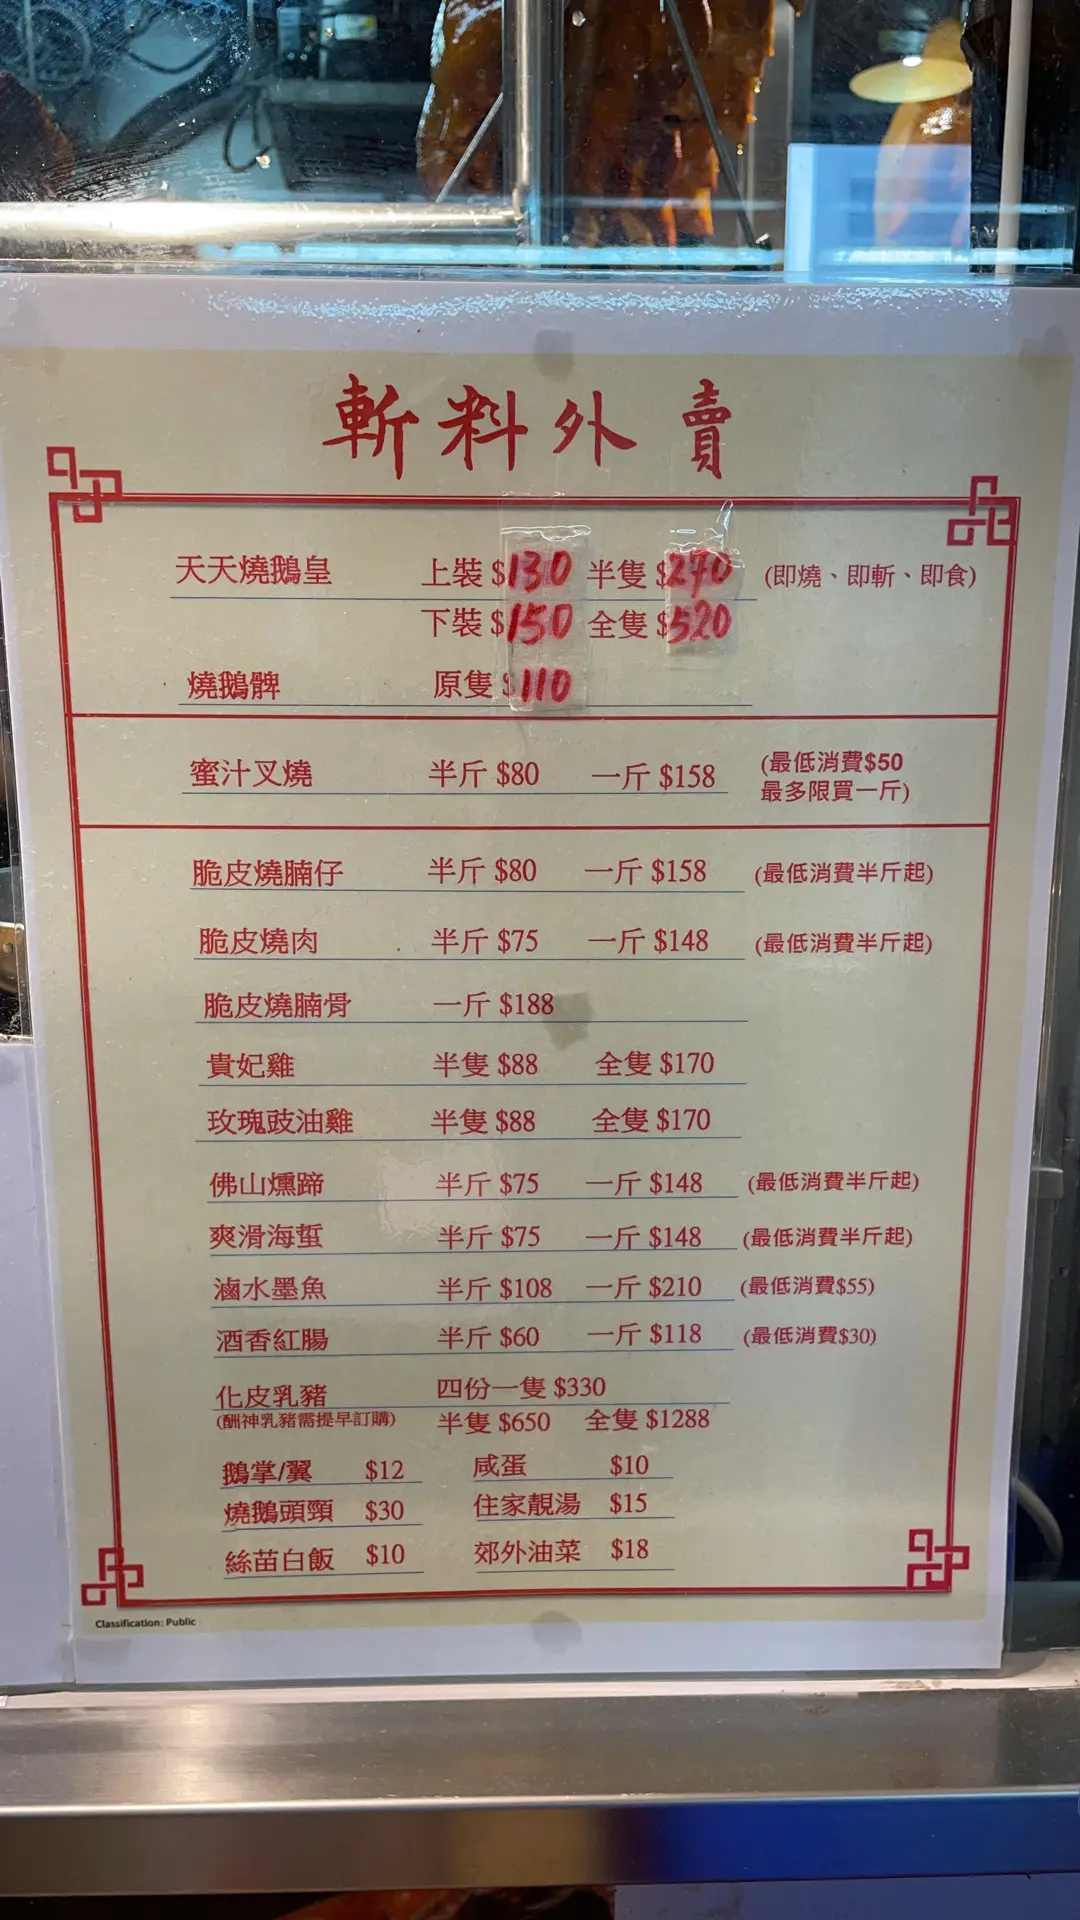 斬料外賣
天天燒鵝皇 上裝 $130 半隻 $270 (即燒、即斬、即食)
下裝 $150 全隻 $520
燒鵝髀 原隻 $110
蜜汁叉燒 半斤 $80 一斤 $158 (最低消費$50
最多限買一斤)
脆皮燒腩仔 半斤 $80 一斤 $158 (最低消費半斤起)
脆皮燒肉 半斤 $75 一斤 $148 (最低消費半斤起)
脆皮燒腩骨 一斤 $188
貴妃雞 半隻 $88 全隻 $170
玫瑰豉油雞 半隻 $88 全隻 $170
佛山燻蹄 半斤 $75 一斤 $148 (最低消費半斤起)
爽滑海蜇 半斤 $75 一斤 $148 (最低消費半斤起)
滷水墨魚 半斤 $108 一斤 $210 (最低消費$55)
酒香紅腸 半斤 $60 一斤 $118 (最低消費$30)
化皮乳豬 四份一隻 $330
(酬神乳豬需提早訂購) 半隻 $650 全隻 $1288
鵝掌/翼 $12 咸蛋 $10
燒鵝頭頸 $30 住家靚湯 $15
絲苗白飯 $10 郊外油菜 $18
Classification: Public